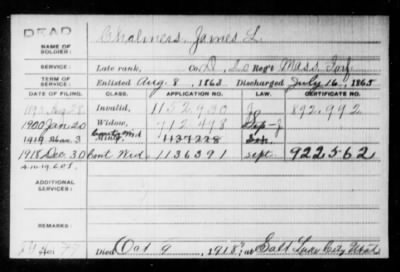 DEAD
NAME OF SOLDIER:
Chalmers, James L.
SERVICE:
Late rank, Co. D, 20 Reg't Mass. Inf.
TERM OF SERVICE:
Enlisted Aug. 8, 1863 Discharged July 16, 1865
DATE OF FILING. CLASS. APPLICATION NO. LAW. CERTIFICATE NO.
Invalid, 1152930 892.992
1900 Jan 20 Widow, 712498
1919 Mar. 3 1137228
1918 Dec. 30 Cont Wid. 1136391 Sept. 922562
ADDITIONAL SERVICES:
REMARKS:
Died Oct 9, 1918, at Salt Lake City Utah